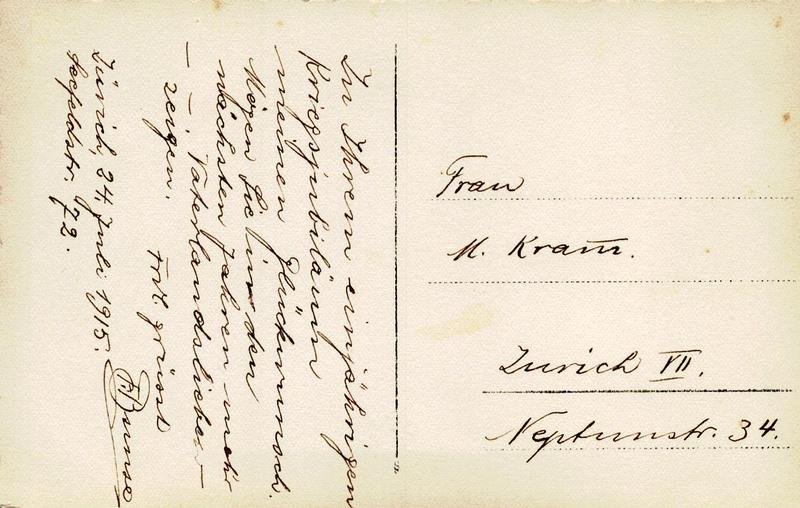 Zu Ihrem einjährigen
Kriegsjubiläum
meinen Glückwunsch.
Mögen Sie in den
nächsten Jahren mehr
— — Vaterlandsliebe —
zeigen.
Frl grüsst
Bunse
Zürich, 24. Juli 1915.
Seefeldstr. 72.
Frau
M. Kram̅.
Zurich VII.
Neptunstr. 34.